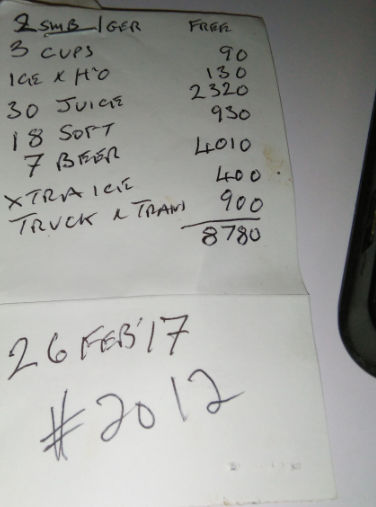 2 SMB 1 GER FREE
3 CUPS 90
ICE x H²O 130
30 JUICE 2320
18 SOFT 930
7 BEER 4010
XTRA ICE 400
TRUCK n TRAN 900
8780
26 FEB'17
#2012